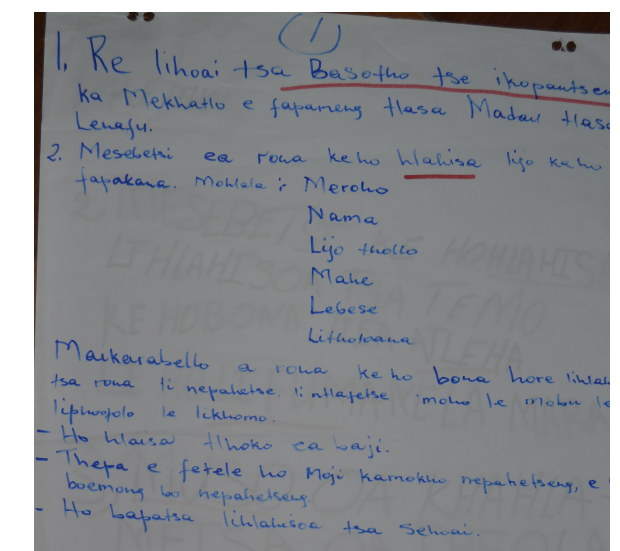 (1)
1. Re lihoai tsa Basotho tse ikopantseng
ka Mekhatlo e fapaneng tlasa Madau tlasa
Lenafu.
2. Mesebetsi ea rona ke ho hlahisa lijo ka ho
fapakana. Mohlala :- Meroho
Nama
Lijo thollo
Mahe
Lebese
Litholoana
Maikarabello a rona ke ho bona hore lihlah
tsa rona li nepahetse. li ntlafetse moho le mobu le
liphoofolo le likhomo.
- Ho hlaisa tlhoko ea baji.
- Thepa e fetele ho Moji kamokho nepahetseng, e
boemong bo nepahetseng.
- Ho bapatsa lihlahisoa tsa Sehoai.